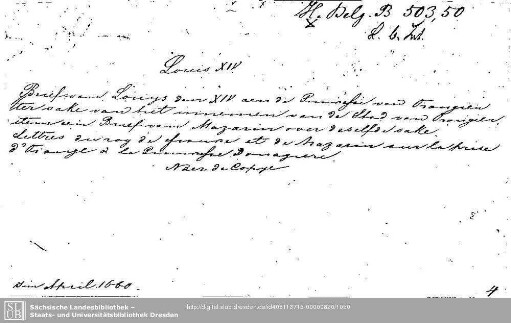 H. Belg. B 503,50
Louis XIV
Brief van Louys den XIV aen de Princesse van Orangien
ter sake van het innemen van de Stad van Orangien,
item een Brief van Mazarin over deselfde sake.
Lettres du roy de france et de Mazarin sur la prise
d'Orange à la Princesse Douagiere.
Naer de Copye
den April 1660.
4
Sächsische Landesbibliothek –
Staats- und Universitätsbibliothek Dresden